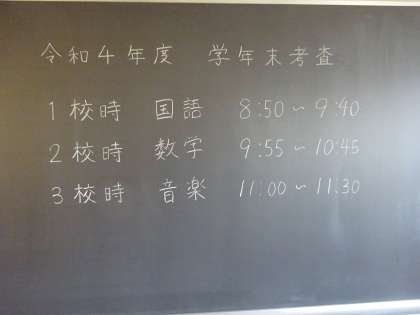 令和4年度 学年末考査
1校時 国語 8:50~9:40
2校時 数学 9:55~10:45
3校時 音楽 11:00~11:30